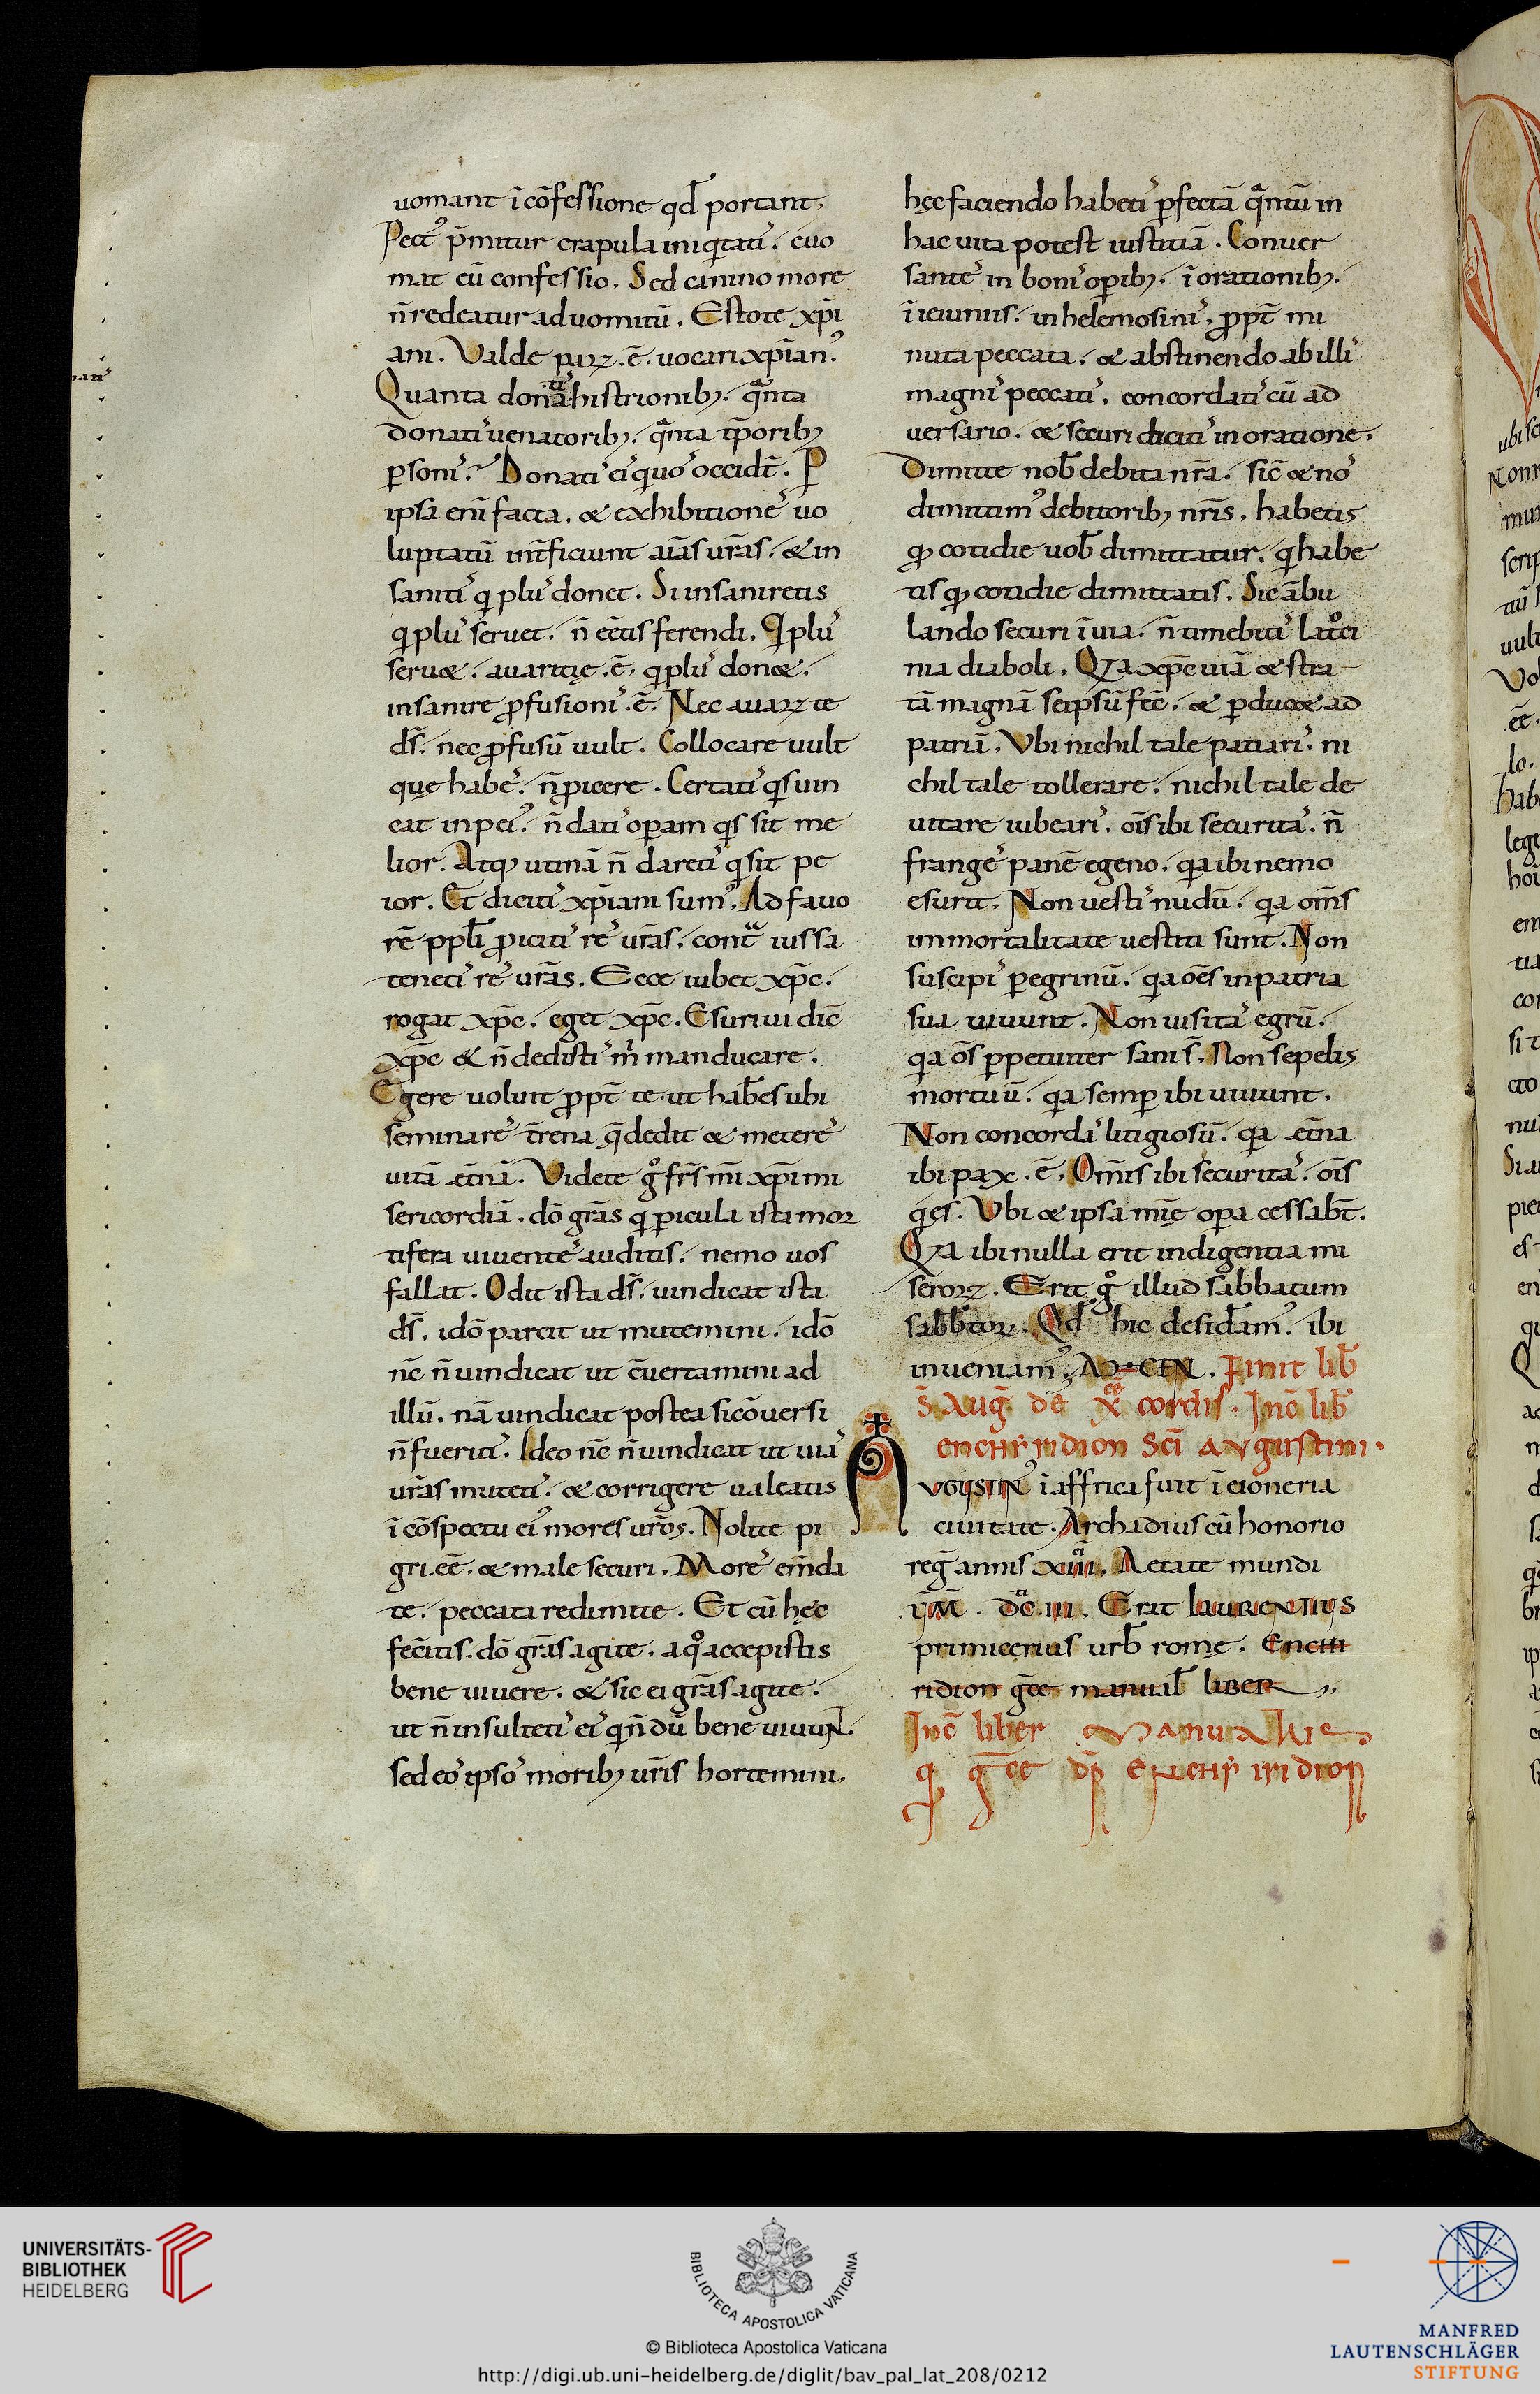 uomant ī cōfessione qđ portant.
Pect᾿ p̄mitur crapula iniq̇tati᾿. euo
mat cū confessio. Sed canino more
n̄ redeatur ad uomitū. Estote xp̄i
ani. Valde paꝝ .ē. uocari xp̄ian᾿.
Quanta donatis histrionibꝫ. qͣnta
donati᾿ uenatoribꝫ. qͣnta tp̄oribꝫ
ꝑsoni᾿. Donati᾿ ei᾿ quo᾿ occidt̄. P
ipsa enī facta. & exhibitione᾿ uo
luptatū int̄ficiunt aīas ur̄as. & in
saniti᾿ q̇ plu᾿ donet. Si insaniretis
q̇ plu᾿ seruet. n̄ eētis ferendi. Q̇ plu᾿
seru&. auaritię .ē. q̇ plu᾿ don&.
insanire ꝓfusioni᾿ .ē. Nec auaꝝ te
ds̄. nec ꝓfusū uult. Collocare uult
quę habe᾿. n̄ ꝓicere. Certati᾿ q̇s uin
cat in pei᾿. n̄ dati᾿ oꝑam q̇s sit me
lior. Atqꝫ utinā n̄ dareti᾿ q̇ sit pe
ior. Et diciti᾿ xp̄iani sum᾿. Ad fauo
rē ppl̄i ꝓiciti᾿ re᾿ ur̄as. contͣ iussa
teneti᾿ re᾿ ur̄as. Ecce iubet xp̄c.
rogat xp̄c. eget xp̄c. Esuriui dic̄
xp̄c & n̄ dedisti᾿ m̄ manducare.
Egere uoluit ꝓpt̄ te. ut hab̄es ubi
seminare᾿ t̄rena q̄ dedit & metere᾿
uitā et̄nā. Videte gͦ fr̄s m̄i xp̄i mi
sericordiā. dō grās q̇ ꝑicula ista moꝛ
tifera uiuente᾿ auditis. nemo uos
fallat. Odit ista ds̄. uindicat ista
ds̄. idō parcit ut mutemini. idō
nc̄ n̄ uindicat ut c̄uertamini ad
illū. nā uindicat postea si cōuersi
n̄ fueriti᾿. Ideo nc̄ n̄ uindicat ut uia᾿
ur̄as muteti᾿. & corrigere ualeatis
ī cōspectu ei᾿ mores ur̄os. Nolite pi
gri eē. & male securi. More᾿ em̄da
te. peccata redimite. Et cū hęc
fec̄itis. dō grās agite. a qͦ accepistis
bene uiuere. & sic ei grās agite.
ut n̄ insulteti᾿ ei᾿ q̇ n̄dū bene uiuuɴᴛ.
sed eo᾿ ipso᾿ moribꝫ ur̄is hortemini.
hęc faciendo habeti᾿ ꝑfectā qͣntū in
hac uita potest iustitiā. Conuer
sante᾿ in boni᾿ oꝑibꝫ. ī orationibꝫ.
ī ieiuniis. in helemosini᾿. ꝓpt̄ mi
nuta peccata. & abstinendo ab illi᾿
magni᾿ peccati᾿. concordati᾿ cū ad
uersario. & securi diciti᾿ in oratione.
Dimitte nob̄ debita nr̄a. sic̄ & no᾿
dimittim᾿ debitoribꝫ nr̄is. habetis
qđ cotidie uob̄ dimittatur. q̇ habe
tis qđ cotidie dimittatis. Sic ābu
lando securi ī uia. n̄ timebiti᾿ latͦci
nia diaboli. Qꝫa xp̄c uiā & stra
tā magnā seipsū fec̄. & ꝑduc& ad
patriā. Vbi nichil tale patiari᾿. ni
chil tale tollerare. nichil tale de
uitare iubeari᾿. oīs ibi securita᾿. n̄
frange᾿ panē egeno. q̇a ibi nemo
esurit. Non uesti᾿ nudū. q̇a om̄s
immortalitate uestiti sunt. Non
suscipi᾿ ꝑegrinū. q̇a oēs in patria
sua uiuunt. Non uisita᾿ egrū.
q̇a ōs ꝑpetuiter sani s̄. Non sepelis
mortuū. q̇a semꝑ ibi uiuunt.
Non concorda᾿ litigiosū. q̇a et̄na
ibi pax .ē. Om̄is ibi securita᾿. oīs
q̇es. Vbi & ipsa mīę oꝑa cessabt̄.
Qꝫa ibi nulla erit indigentia mi
seroꝝ. Erit gͦ illud sabbatum
sabb̄toꝝ. Qđ hic desiđam᾿. ibi
inueniam᾿. AMEN. Finit lib̄
S̄ Aug̅ de x cordis. Inc̄ lib̄
enchyridion Sc̄i Augustini.
AVGVSTIN᾿ ī affrica fuit ī eioneria
ciuitate. Archadius cū honorio
reg̅ annis xiiii. Aetate mundi
Erat LAURENTIUS
primicerius urb̄ romę. Enchi
ridion gc̄e manual̄ LIBER
Inc̄ liber Manualis
q̇ gc̄e dr̄ enchyiridion
UNIVERSITÄTS-
BIBLIOTHEK
HEIDELBERG
BIBLIOTECA APOSTOLICA VATICANA
© Biblioteca Apostolica Vaticana
http://digi.ub.uni-heidelberg.de/diglit/bav_pal_lat_208/0212
MANFRED
LAUTENSCHLÄGER
STIFTUNG